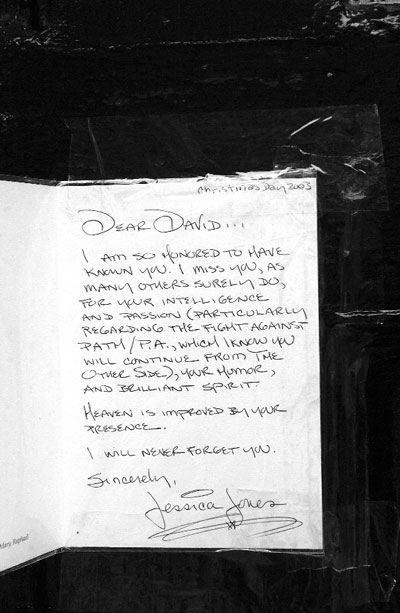 Christmas Day 2003
DEAR DAVID...
I AM SO HONORED TO HAVE
KNOWN YOU. I MISS YOU, AS
MANY OTHERS SURELY DO,
FOR YOUR INTELLIGENCE
AND PASSION (PARTICULARLY
REGARDING THE FIGHT AGAINST
PATH/P.A., WHICH I KNOW YOU
WILL CONTINUE FROM THE
OTHER SIDE), YOUR HUMOR,
AND BRILLIANT SPIRIT.
HEAVEN IS IMPROVED BY YOUR
PRESENCE.
I WILL NEVER FORGET YOU.
Sincerely,
Jessica Jones
Mary Raphael